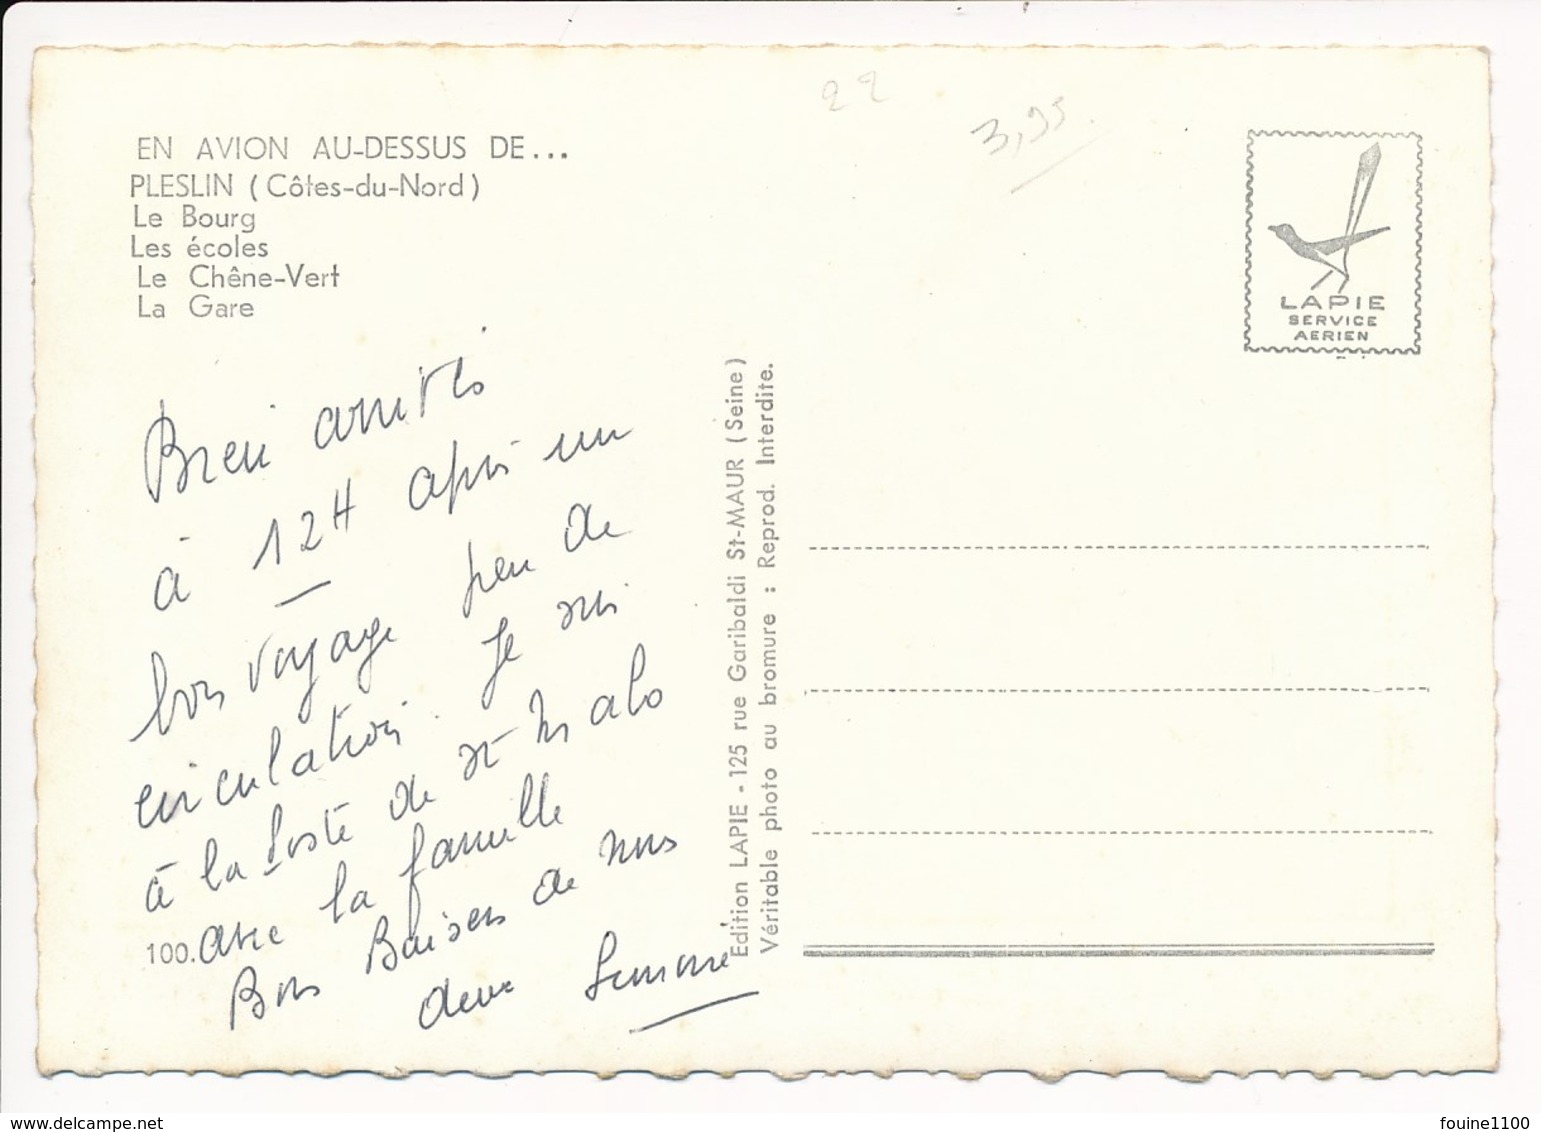 22
3,95
EN AVION AU-DESSUS DE...
PLESLIN (Côtes-du-Nord)
Le Bourg
Les écoles
Le Chêne-Vert
La Gare
LAPIE
SERVICE
AERIEN
Bien arrivés
à 12H après un
bon voyage peu de
circulation. Je suis
à la Poste de St Malo
avec la famille
Bons Baisers de nous
deux Simone
100.
Edition LAPIE - 125 rue Garibaldi St-MAUR (Seine)
Véritable photo au bromure : Reprod. Interdite.
www.delcampe.net
fouine1100